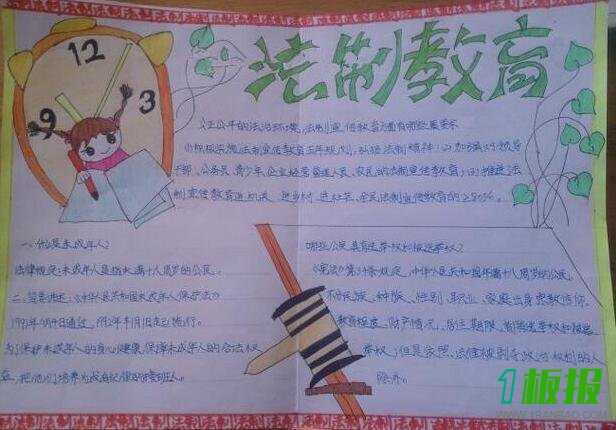 法制教育
12
9
3
公正公平的法治环境,法制宣传教育方面有哪些要求
(1)积极实施法制宣传教育五年规划,弘扬法制精神;(2)加强对领导
干部、公务员、青少年、企业经营管理人员、农民的法制宣传教育;(3)推进法
制宣传教育进机关、进乡村、进社区,全民法制宣传教育的≥80%。
一、什么是未成年人?
法律规定:未成年人是指未满十八周岁的公民。
二、简要讲述:《中华人民共和国未成年人保护法》
1991年9月4日通过,1992年1月1日起施行。
为了保护未成年人的身心健康,保障未成年人的合法权
益,把他们培养成为有纪律的接班人。
哪些公民具有选举权和被选举权?
《宪法》第34条规定,中华人民共和国年满十八周岁的公民,
不分民族、种族、性别、职业、家庭出身、宗教信仰、
教育程度、财产情况、居住期限,都有选举权和被选
举权;但是依照法律被剥夺政治权利的人
除外。
1板报
WWW.1RANBAO.COM